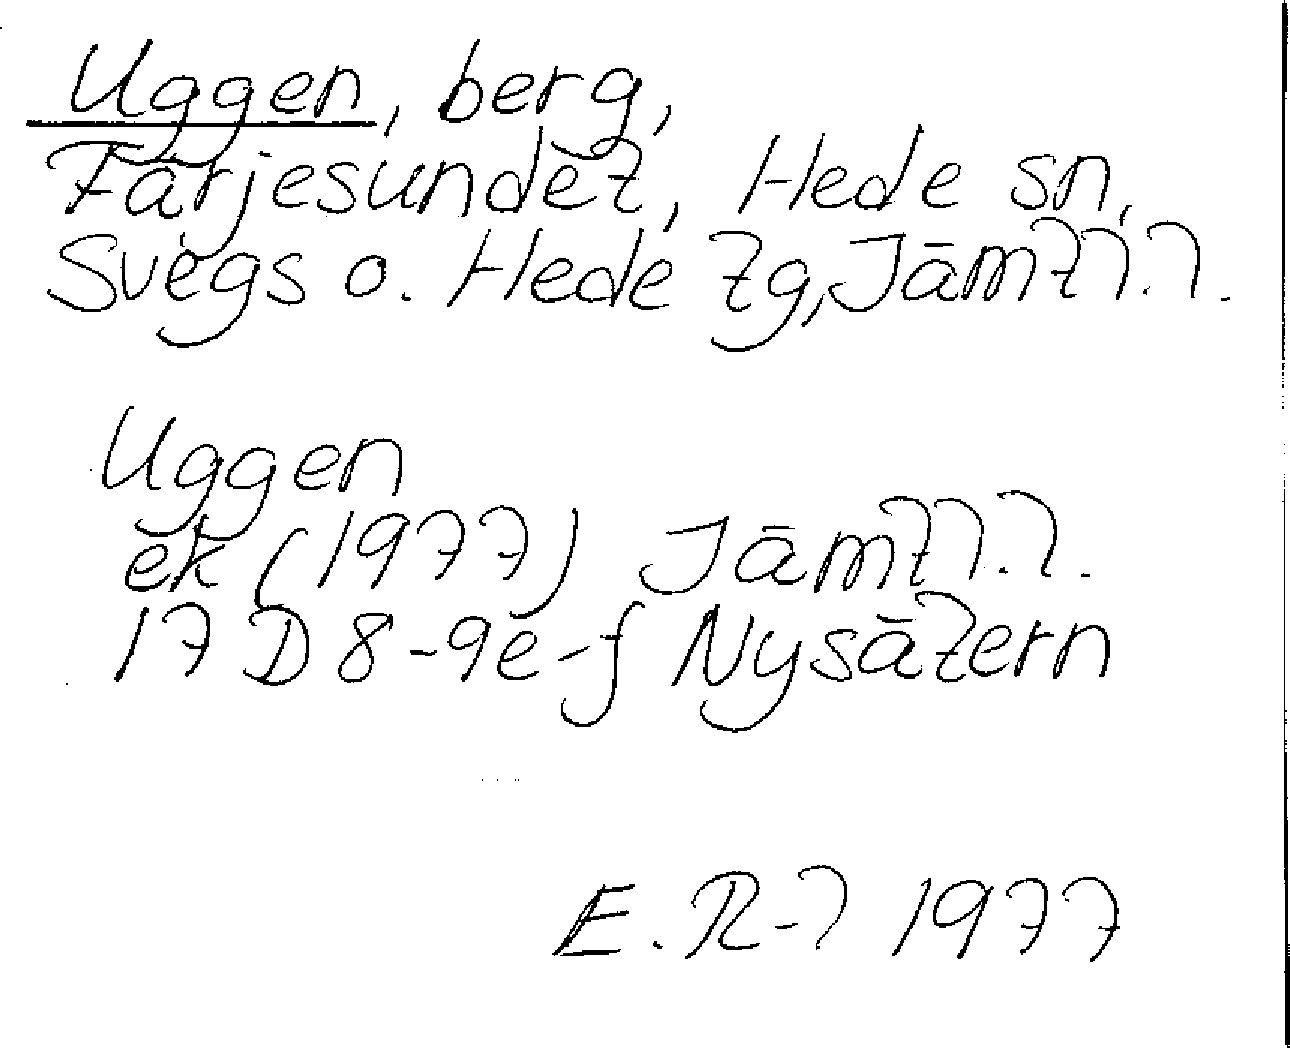 Uggen, berg,
Färjesundet, Hede sn,
Svegs o. Hede tg, Jämtl.l.
Uggen
ek (1977) Jämtl.l.
17 D 8-9e-f Nysätern
E. R-l 1977